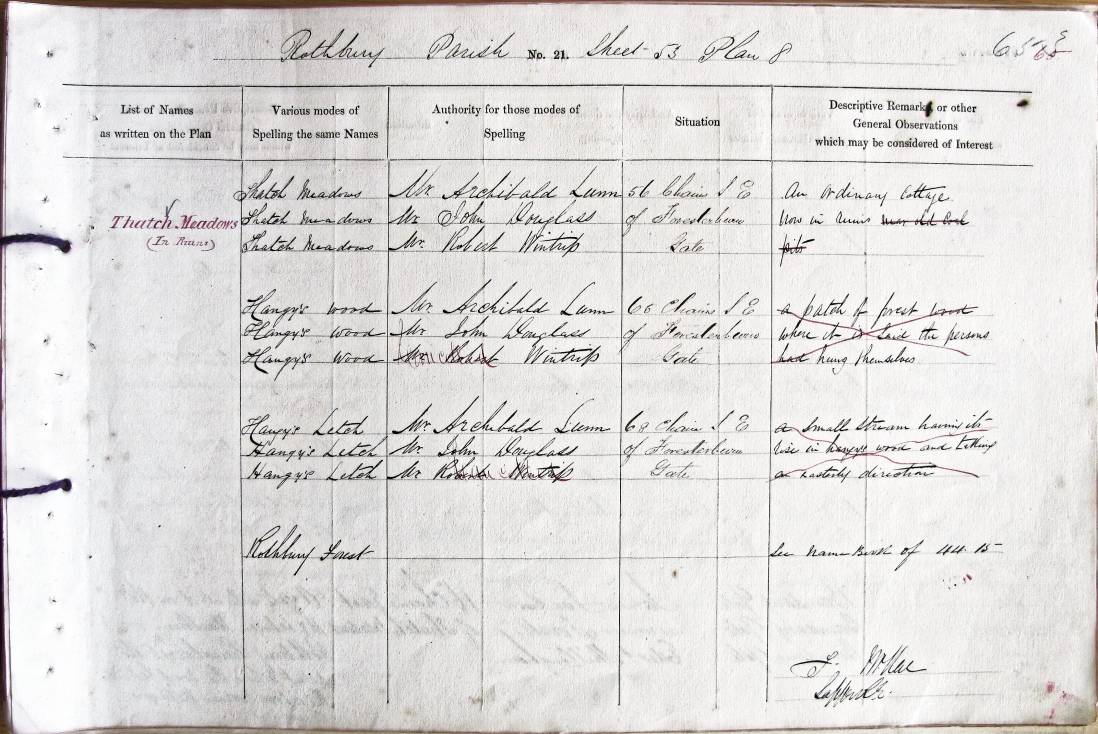 Rothbury Parish No. 21. Sheet 53 Plan 8
65
List of Names
as written on the Plan
Various modes of
Spelling the same Names
Authority for those modes of
Spelling
Situation
Descriptive Remarks, or other
General Observations
which may be considered of Interest
Thatch Meadows
(In Ruins)
Thatch Meadows
Thatch Meadows
Thatch Meadows
Mr. Archibald Lunn
Mr. John Douglass
Mr. Robert Wintrip
56 Chains S E
of
Gate
An ordinary Cottage
now in ruins near old Coal
pits
Hangy's wood
Hangy's wood
Hangy's wood
Mr. Archibald Lunn
Mr. John Douglass
Mr. Robert Wintrip
68 Chains S E
of
Gate
a patch of forest wood
where it is said the persons
had hung themselves.
Hangy's Letch
Hangy's Letch
Hangy's Letch
Mr. Archibald Lunn
Mr. John Douglass
Mr Robert Wintrip
68 Chains S E
of
Gate
a small stream having its
rise in hangys wood and taking
an easterly direction
Rothbury Forest
See Name Book of 44.15